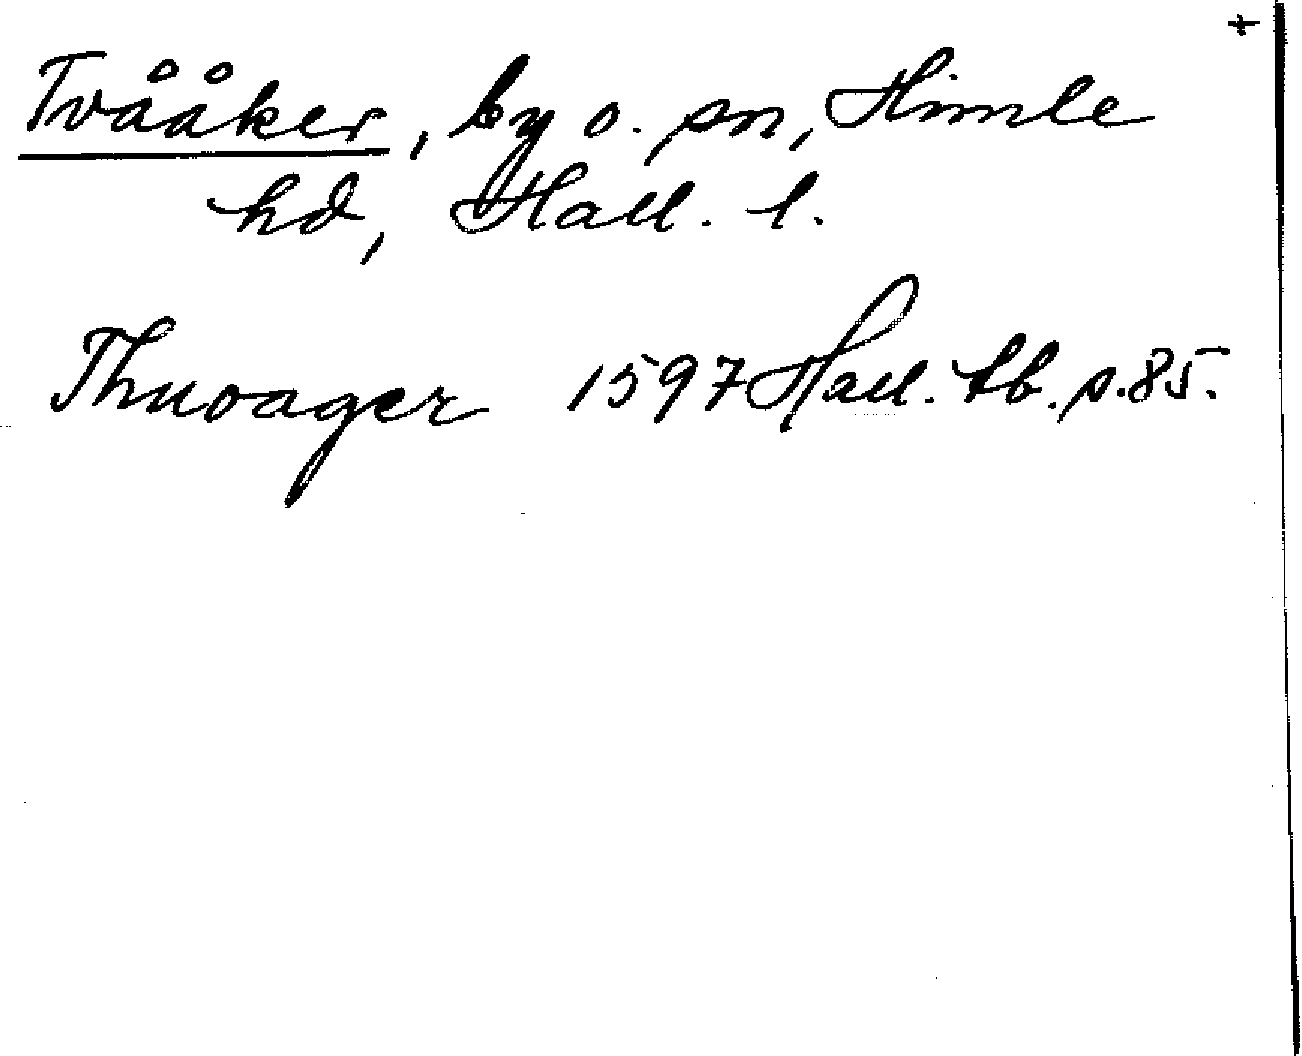 Tvååker, by o. sn, Himle
hd, Hall. l.
Thuoager 1597 Hall. tb. s. 85.